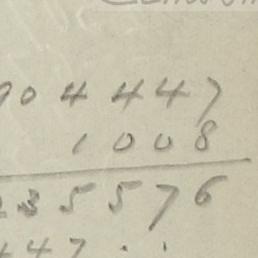 904447
1008
235576
447 . .